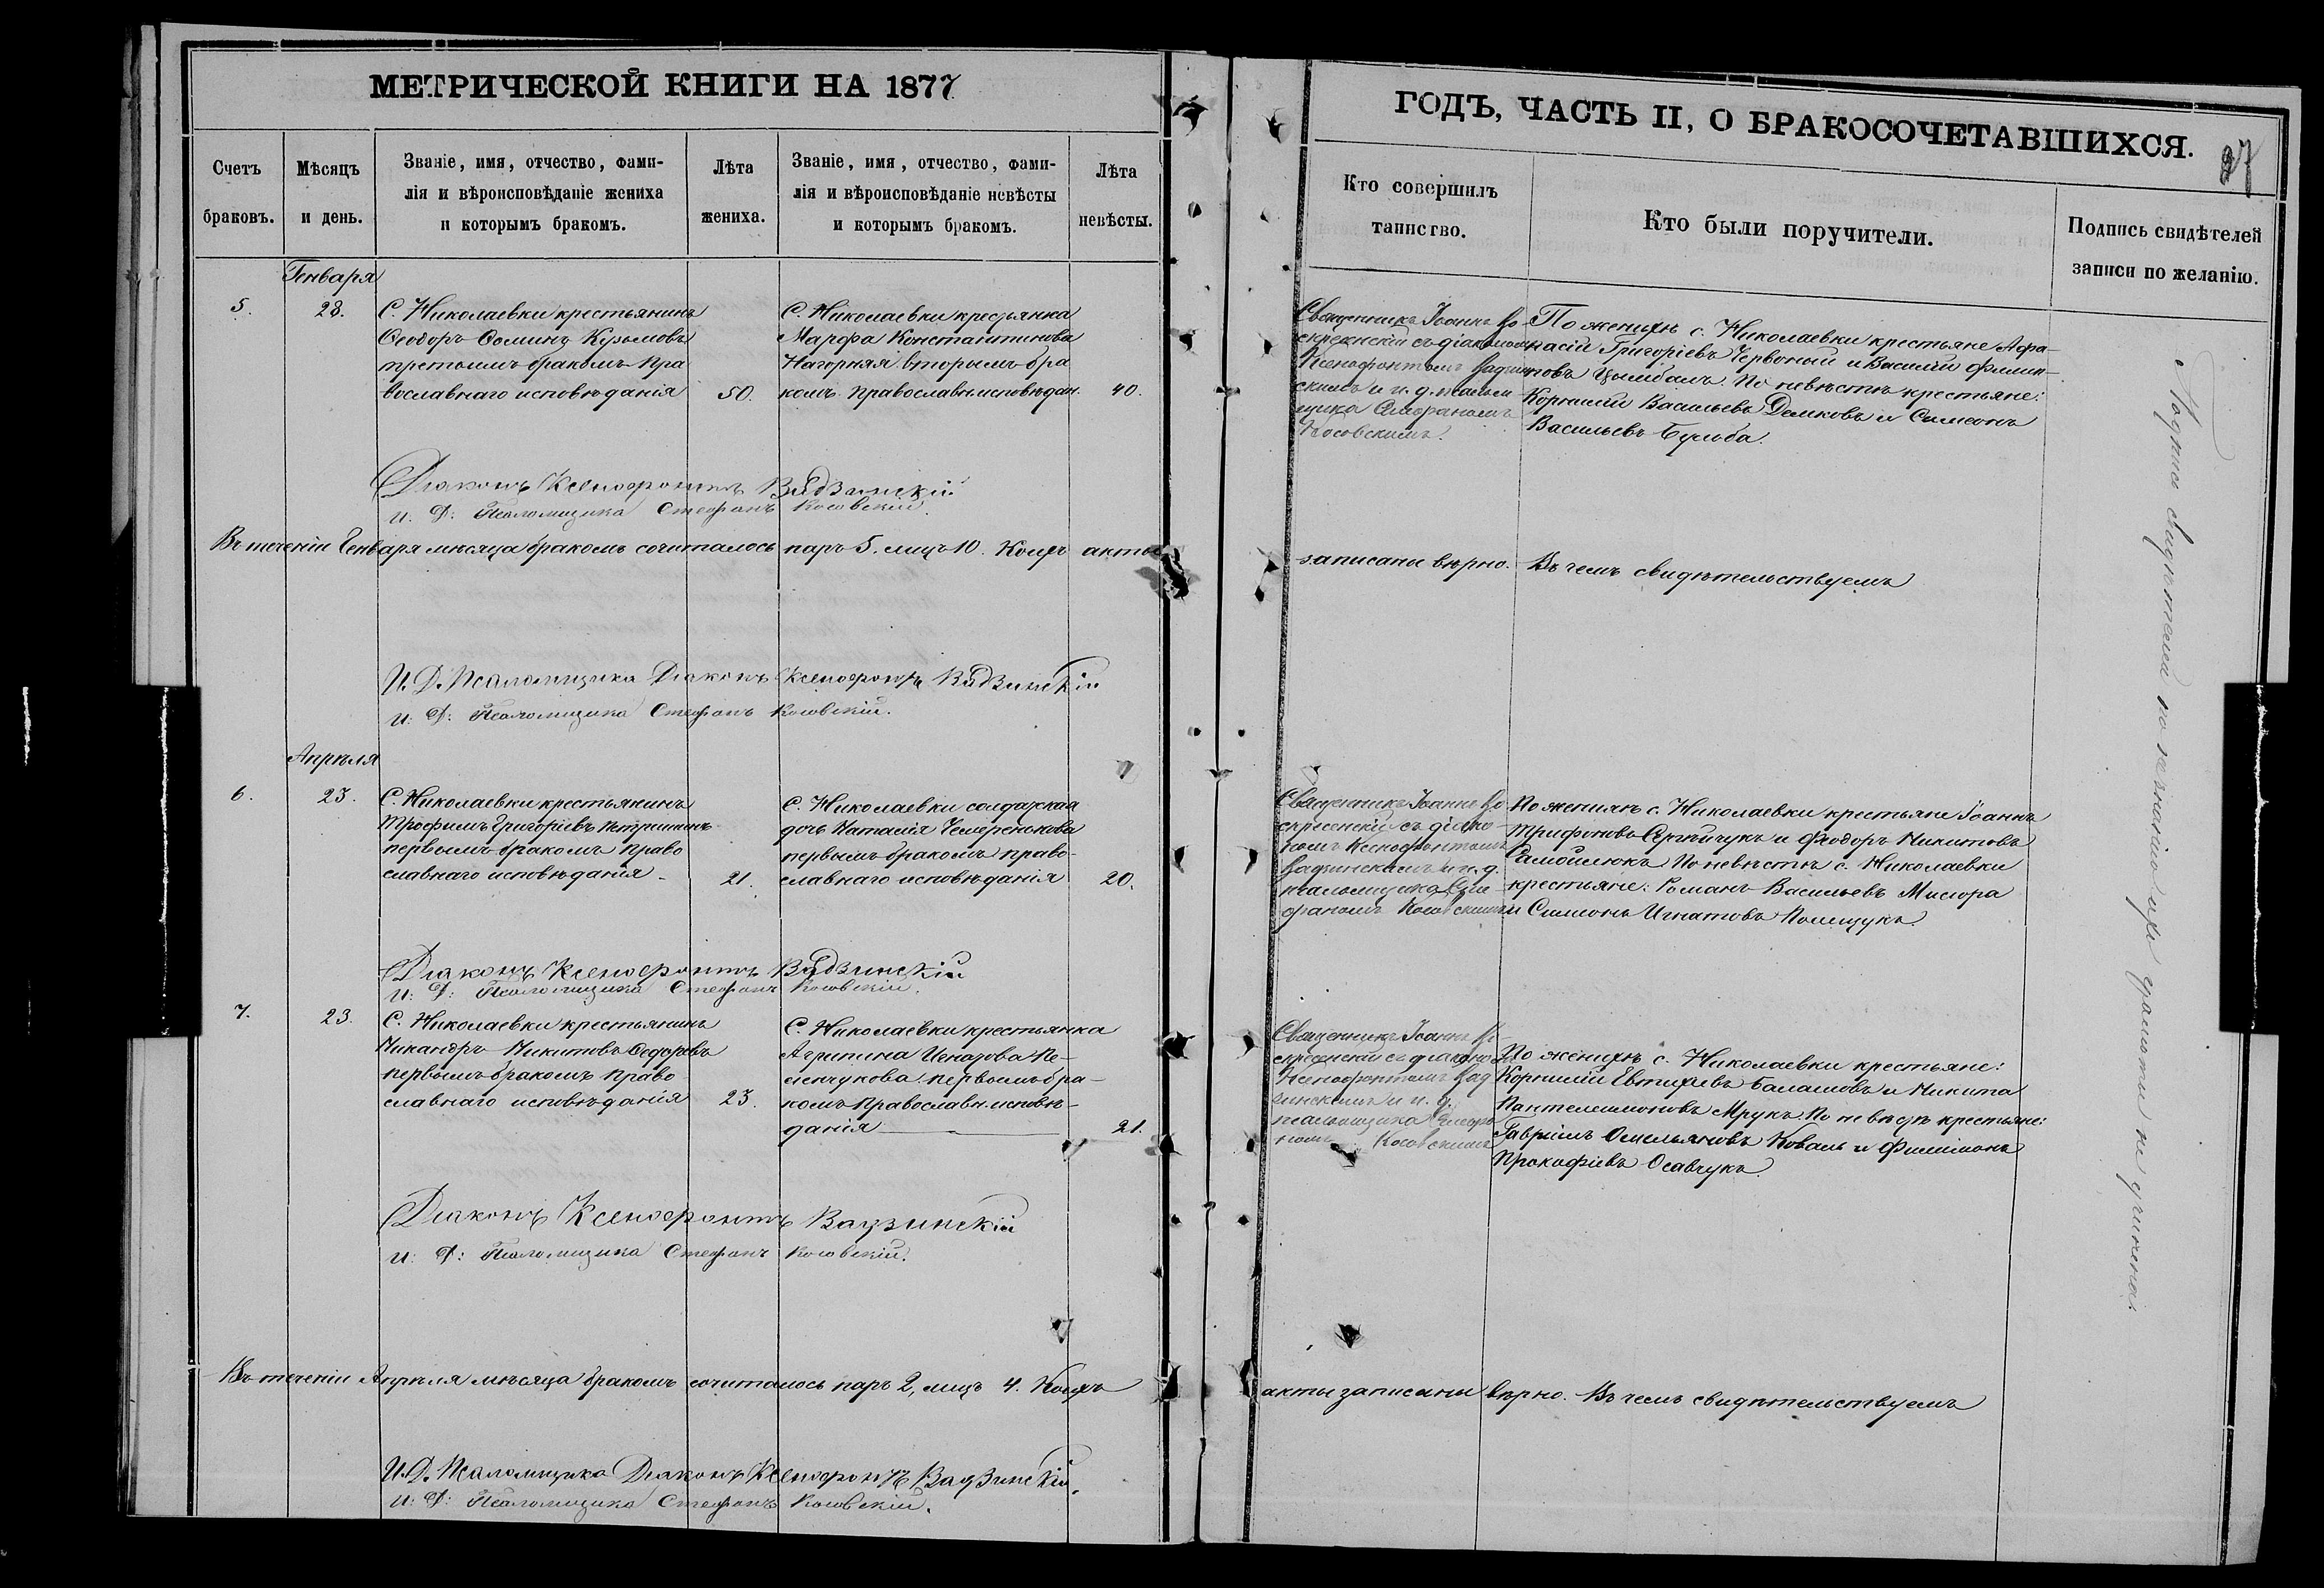 МЕТРИЧЕСКОЙ КНИГИ НА 1877
Счетъ
браковъ.
Мѣсяцъ
и день.
Званіе, имя, отчество, фами-
лія и вѣроисповѣданіе жениха
и которымъ бракомъ.
Лѣта
жениха.
Званіе, имя, отчество, фами-
лія и вѣроисповѣданіе невѣсты
и которымъ бракомъ.
Лѣта
невѣсты.
ГОДЪ, ЧАСТЬ II, О БРАКОСОЧЕТАВШИХСЯ.
27
Кто совершилъ
таинство.
Кто были поручители.
Подпись свидѣтелей
записи по желанію.
Генваря
5.
28.
С. Николаевки крестьянинъ
Ѳеодоръ Ѳоминъ
третьимъ бракомъ пра
вославнаго исповѣданія
50.
С. Николаевки крестьянка
Марфа Константинова
Нагорняя вторымъ бра
комъ православн. исповѣдан.
40.
Священникъ Іоаннъ Во
скресенскій съ діакономъ
Ксенофонтомъ Вадзин
скимъ и и. д. псалом
щика Стефаномъ
Косовскимъ.
По женихѣ с. Николаевки крестьяне Афа-
насій Григоріевъ Червоный и Василій Филип-
повъ Цымбалъ. По невѣстѣ крестьяне:
Корнилій Васильевъ Демковъ и Симеонъ
Васильевъ Бульба.
Діаконъ Ксенофонтъ Вадзинскій
и. д: Псаломщика Стефанъ Косовскій.
Въ теченіи Генваря мѣсяца бракомъ сочиталось паръ 5. лицъ 10. Коихъ акты
записаны вѣрно. Въ чемъ свидѣтельствуемъ
И. Д. Псаломщика Діаконъ Ксенофонтъ Вадзинскій
и: д: Псаломщика Стефанъ Косовскій.
Апрѣля
6.
23.
С. Николаевки крестьянинъ
Трофимъ Григоріевъ
первымъ бракомъ право
славнаго исповѣданія
21.
С. Николаевки солдатская
дочь Наталія Чемеренькова
первымъ бракомъ право-
славнаго исповѣданія
20.
Священникъ Іоаннъ Во
скресенскій съ діако-
номъ Ксенофонтомъ
Вадзинскимъ и и. д.
псаломщика Сте
фаномъ Косовскимъ
По женихѣ с. Николаевки крестьяне Іоаннъ
Трифоновъ Сергійчукъ и Ѳеодоръ Никитовъ
Самойлюкъ По невѣстѣ с. Николаевки
крестьяне: Романъ Васильевъ Мисюра
и Симеонъ Игнатовъ Полищукъ.
Діаконъ Ксенофонтъ Вадзинскій
и: д: Псаломщика Стефанъ Косовскій.
7.
23.
С. Николаевки крестьянинъ
Никандръ Никитовъ Ѳедоровъ
первымъ бракомъ право
славнаго исповѣданія
23.
С. Николаевки крестьянка
Агрипина
первымъ бра-
комъ православн. исповѣ-
данія
21.
Священникъ Іоаннъ Во-
скресенскій съ діакономъ
Ксенофонтомъ Вад
зинскимъ и и. д.
псаломщика Стефа
номъ Косовскимъ
По женихѣ с. Николаевки крестьяне:
Корнилій Евтихіевъ Балашовъ и Никита
Пантелеимоновъ Мрукъ По невѣстѣ крестьяне:
Гавріилъ Омельяновъ Коваль и Филимонъ
Прокофіевъ Осавчукъ.
Діаконъ Ксенофонтъ Вадзинскій
и: д: Псаломщика Стефанъ Косовскій.
Въ теченіи Апрѣля мѣсяца бракомъ сочиталось паръ 2, лицъ 4. Коихъ
акты записаны вѣрно. Въ чемъ свидѣтельствуемъ
И. Д. Псаломщика Діаконъ Ксенофонтъ Вадзинскій.
и: д: Псаломщика Стефанъ Косовскій.
Подписи свидѣтелей по незнанію ими грамоты не учинены.